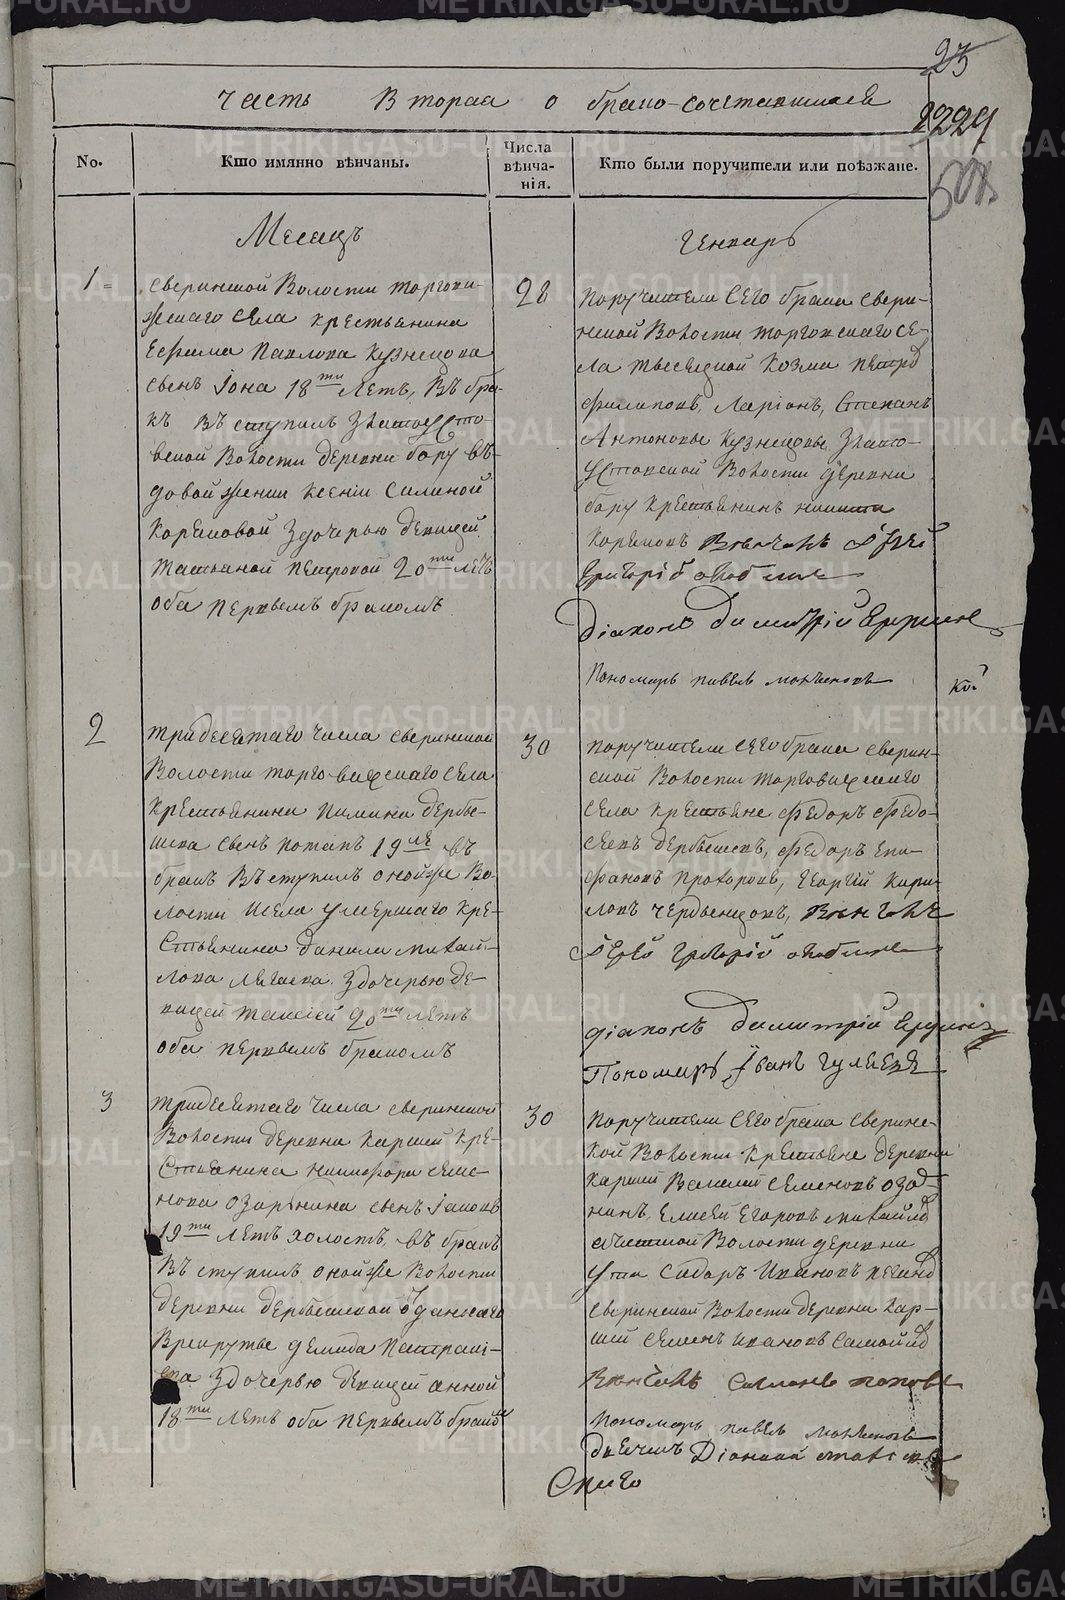 23
Часть Вторая о брако-сочетавшихся
2229
No.
Кто имянно вѣнчаны.
Числа вѣнча-нія.
Кто были поручители или поѣзжане.
Месяцъ
Генварь
1
Сверинской Волости торгови-
жскаго села крестьянина
Ефима Павлова Кузнецова
сынъ Iона 18ти Летъ, Въ бра-
къ Въ ступилъ Златоусто-
вской Волости деревни бору въ-
довой жонки Ксенiи Силиной
Коряковой здочерью девицей
Татьяной Петровой 20ти летъ
оба первымъ бракомъ
28
Поручители Сего брака Свери-
нской Волости торговскаго се-
ла Козма Петровъ
Филиповъ, Ларiонъ, Степанъ
Антоновы Кузнецовы Злато-
устовской Волости деревни
бору Крестьянинъ Никита
Коряковъ Венчалъ Iерей
Григорiй
Дiаконъ Димитрiй
Пономарь Павелъ
2
тридесятаго числа Сверинской
Волости торговижскаго села
крестьянина Пимина Дербы-
шева сынъ Потапъ 19 ле въ
бракъ Въ ступилъ оной же Во-
лости и села умершаго кре-
стьянина Данила Михай-
лова здочерью де-
вицей Таисiей 20ти летъ
оба первымъ бракомъ
30
Поручители Сего брака Сверин-
ской Волости торговижскаго
села крестьяне Федоръ Федо-
сеевъ Дербышевъ, Федоръ Епи-
фановъ Прохоровъ, Георгiй Кири-
ловъ Венчалъ
Iерей Григорiй
Дiаконъ Димитрiй
Пономарь Iванъ Гуляевъ
3
тридесятаго числа Сверинской
Волости деревни Каршей кре-
стьянина Никифора Семе-
нова Озорнина сынъ Iаковъ
19ти летъ холостъ, въ бракъ
Въ ступилъ оной же Волости
деревни Дербышевой отданнаго
Врекрутье Демида
здочерью девицей Анной
18ти летъ оба первымъ бракомъ
30
Поручители Сего брака Сверинс-
кой Волости крестьяне деревни
Каршей Василей Семеновъ Озор-
нинъ, Елисей Егоровъ Михайловъ
Ачитской Волости деревни
Ута Сидоръ Ивановъ
Сверинской Волости деревни Кар-
шей Семенъ Ивановъ Самойловъ
Венчалъ Поповъ
Пономарь Павелъ